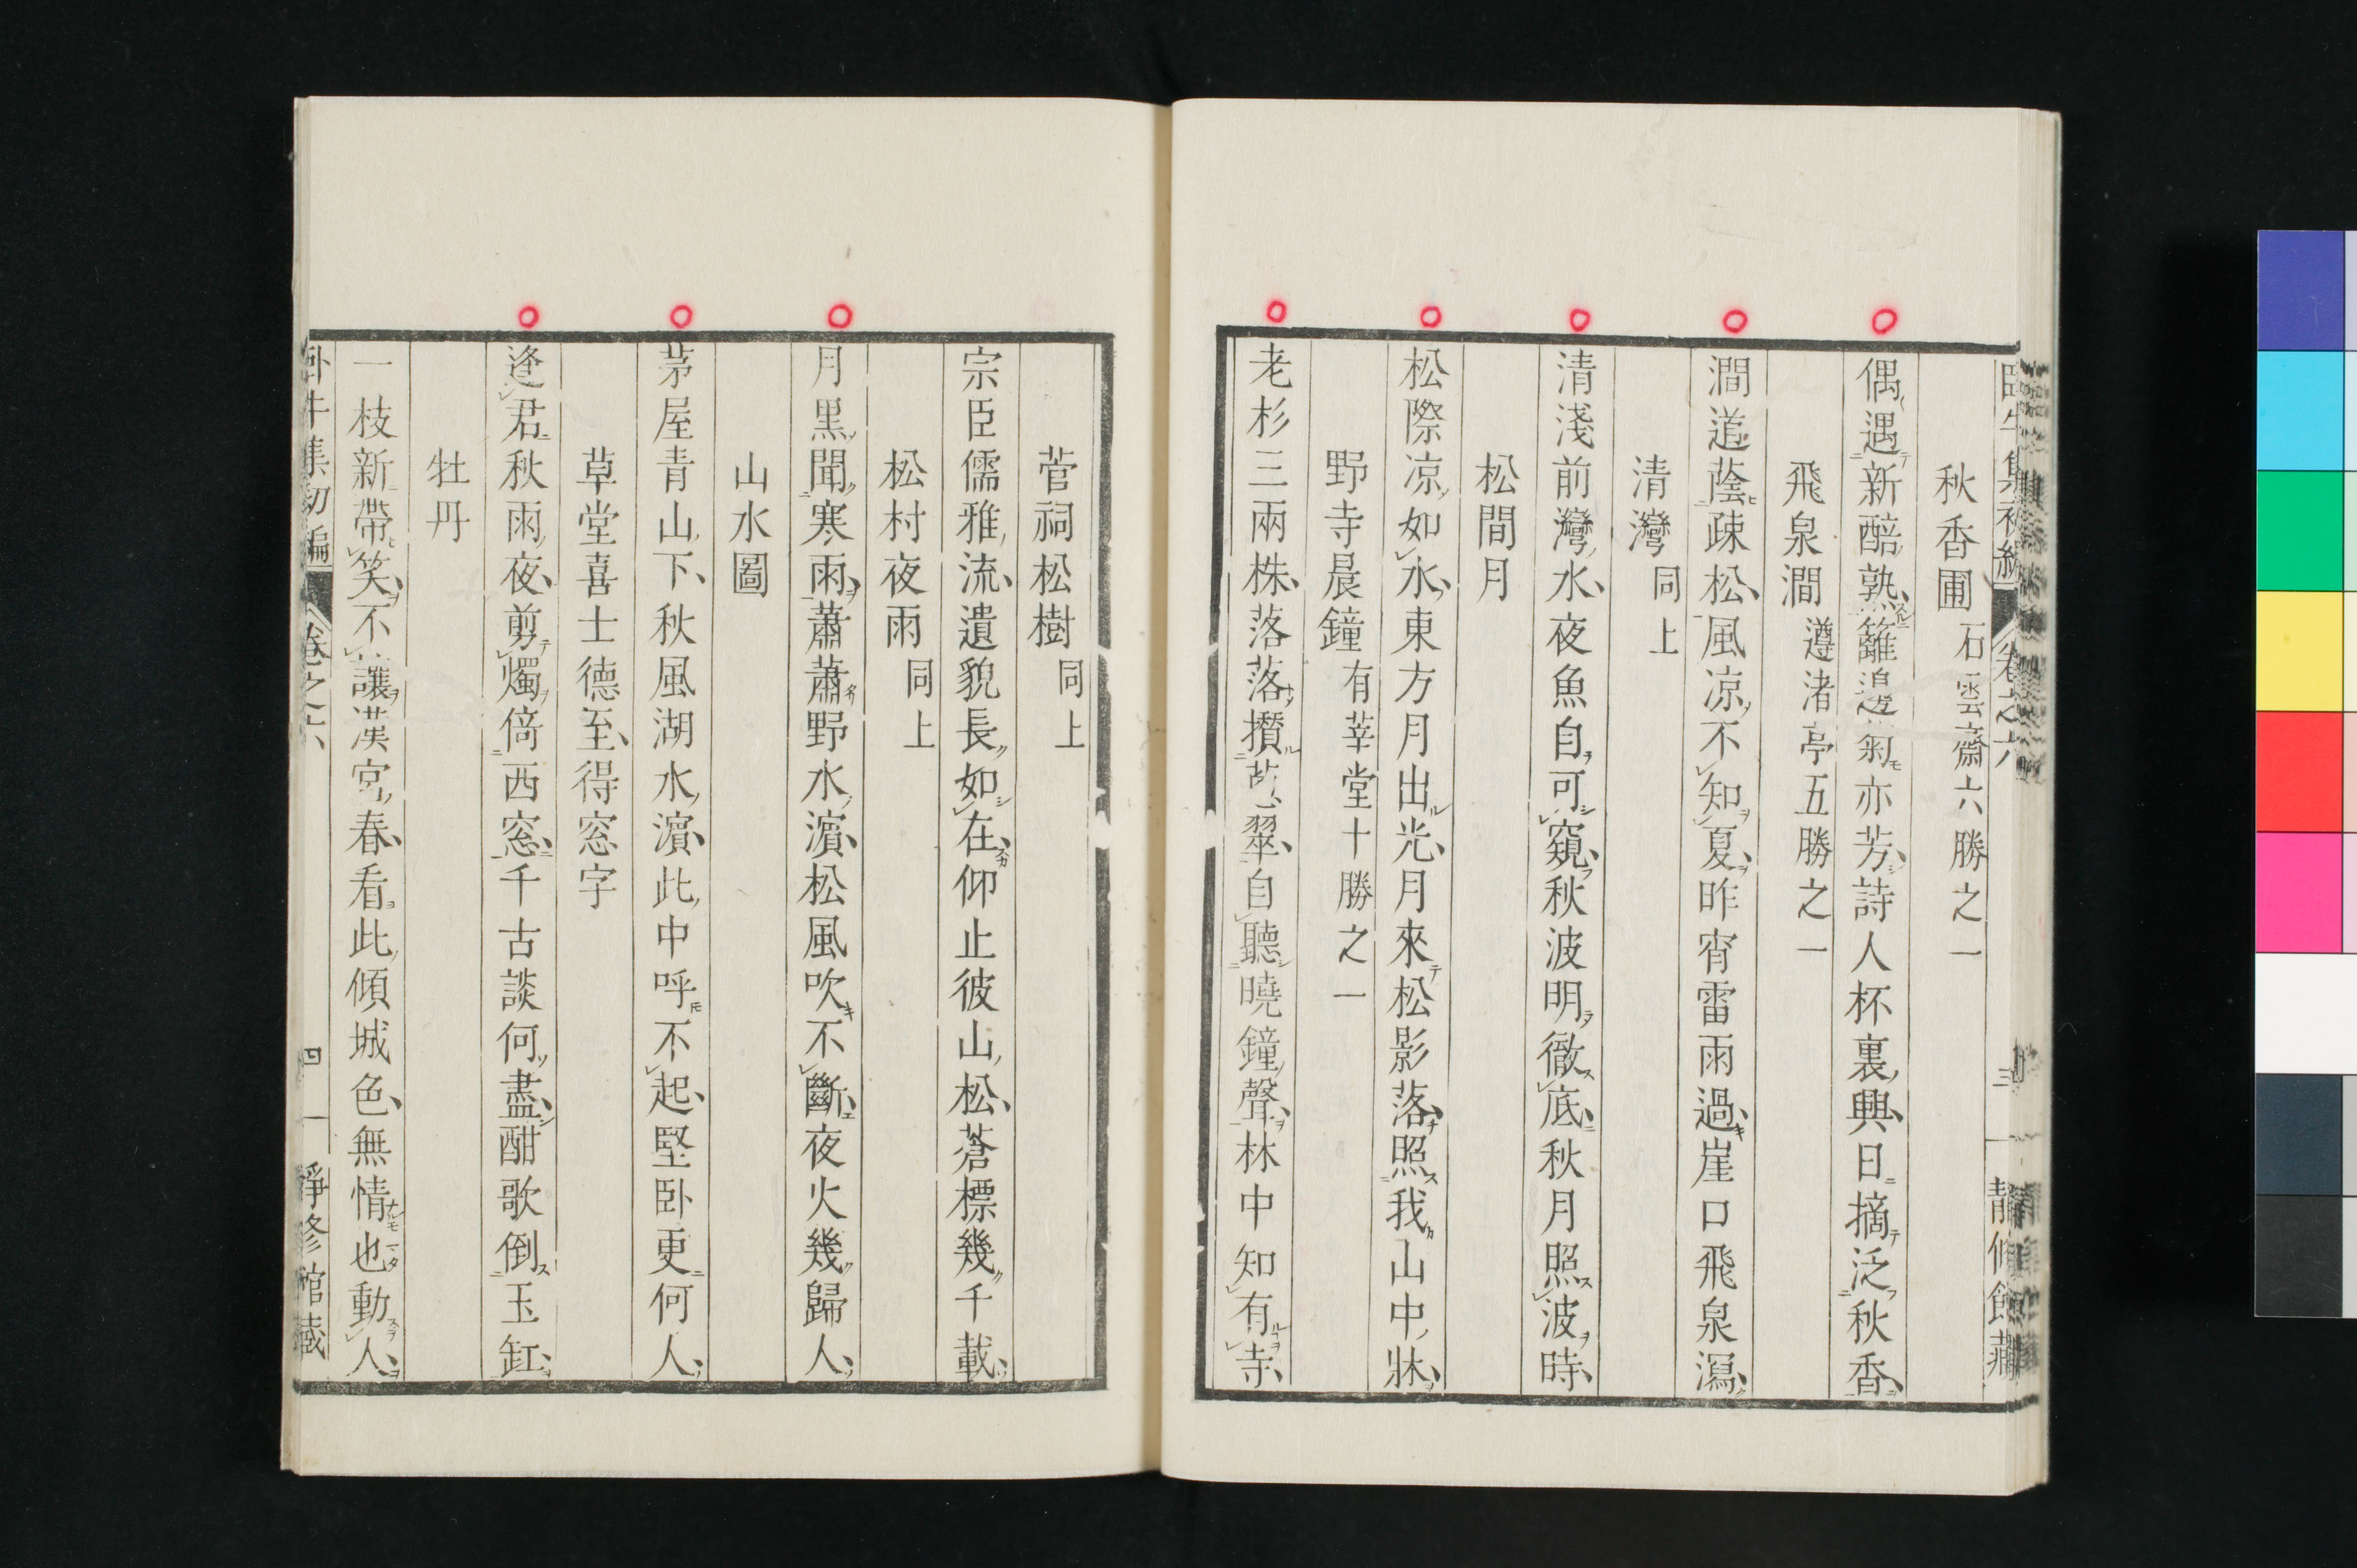 秋香圃 石雲齋六勝之一
偶遇新醅熟籬邊菊亦芳詩人杯裏興日摘泛秋香
飛泉澗 遵渚亭五勝之一
澗道蔭疎松風凉不知夏昨宵雷雨過崖口飛泉瀉
清灣 同上
清淺前灣水夜魚自可窺秋波明徹底秋月照波時
松間月
松際凉如水東方月出光月來松影落照我山中牀
野寺晨鐘 有莘堂十勝之一
老杉三兩株落落攢葱翠自聽曉鐘聲林中知有寺
菅祠松樹 同上
宗臣儒雅流遺貌長如在仰止彼山松蒼標幾千載
松村夜雨 同上
月黒聞寒雨蕭蕭野水濵松風吹不斷夜火幾歸人
山水圖
茅屋青山下秋風湖水濵此中呼不起堅臥更何人
草堂喜士德至得窓字
逢君秋雨夜剪燭倚西窓千古談何盡酣歌倒玉缸
牡丹
一枝新帶笑不讓漢宮春看此傾城色無情也動人
臥牛集初編 卷之六 四 靜修館藏